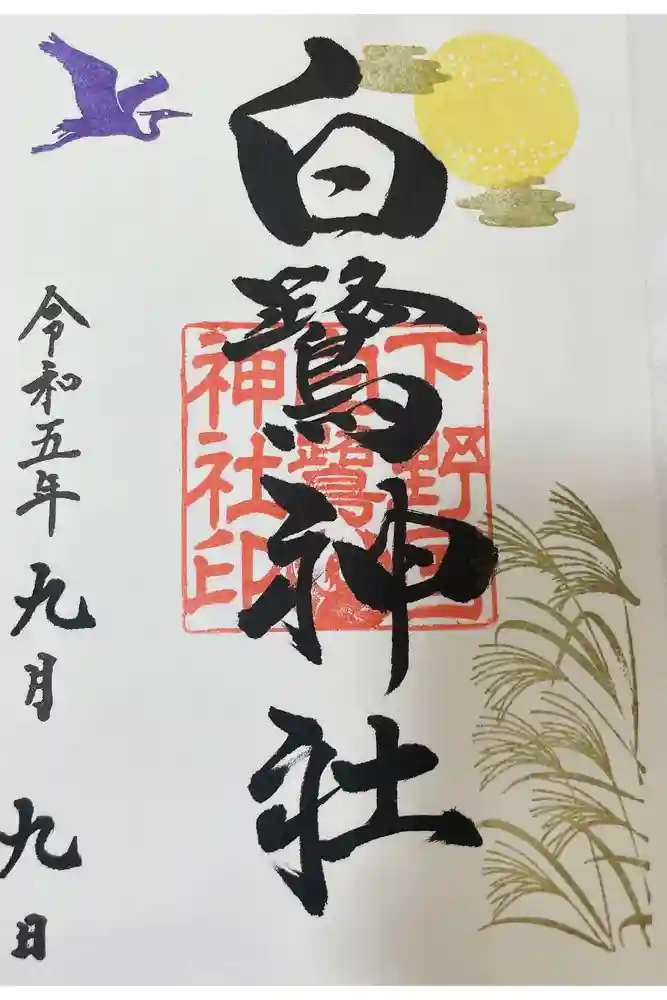 白鷺神社
下野国
白鷺
神社印
令和五年九月九日